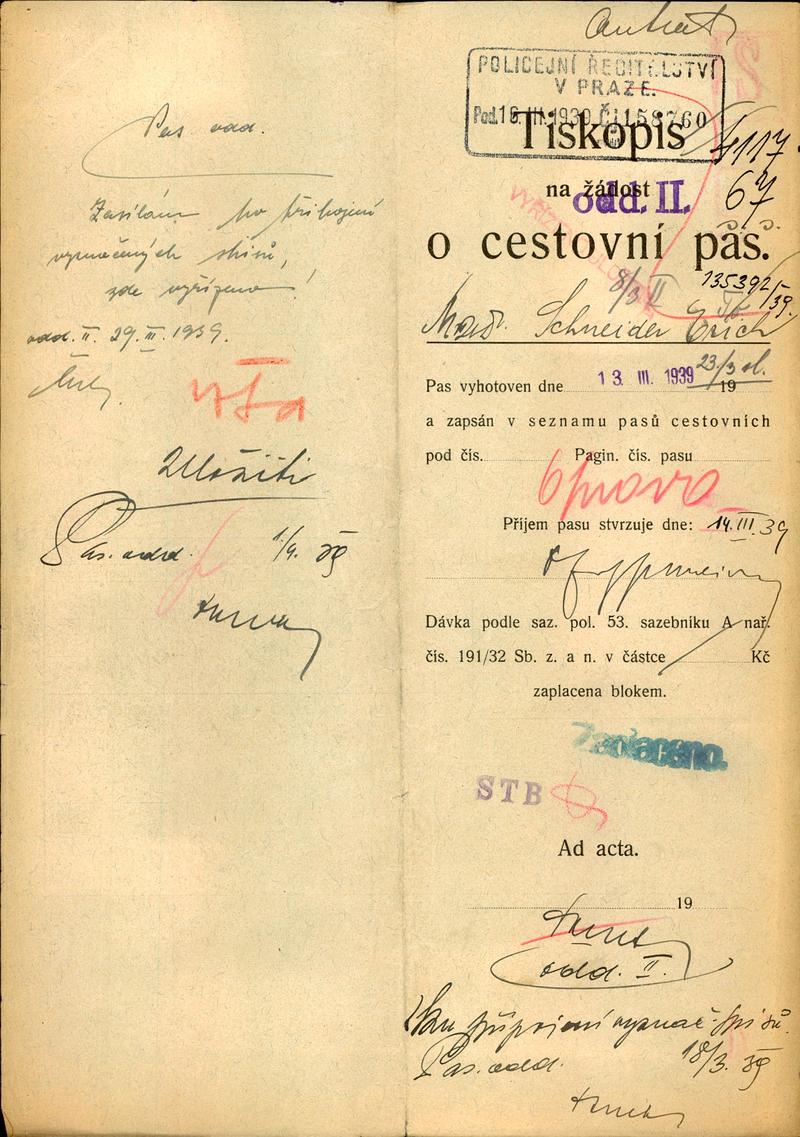 Pas. odd.
Zasílám po připojení
vyznačených spisů,
zde vyřízeno!
odd. II. 29. III. 1939.
Uložiti
Pas. odd. 1/4. 39
POLICEJNÍ ŘEDITELSTVÍ
V PRAZE.
Pod. 16. III. 1939 Č.j. 158760
Tiskopis
4117
na žádost
odd. II.
67
o cestovní pas.
8/3 II
135392/39.
Schneider Erich
23/3
Pas vyhotoven dne 13. III. 1939 19
a zapsán v seznamu pasů cestovních
pod čís. Pagin. čís. pasu
Oprava
Příjem pasu stvrzuje dne: 14. III. 39
Dávka podle saz. pol. 53. sazebníku A nař.
čís. 191/32 Sb. z. a n. v částce Kč
zaplacena blokem.
Zaplaceno.
STB
Ad acta.
19
odd. II.
připojení vyznač. spisů.
Pas. odd. 18/3. 39